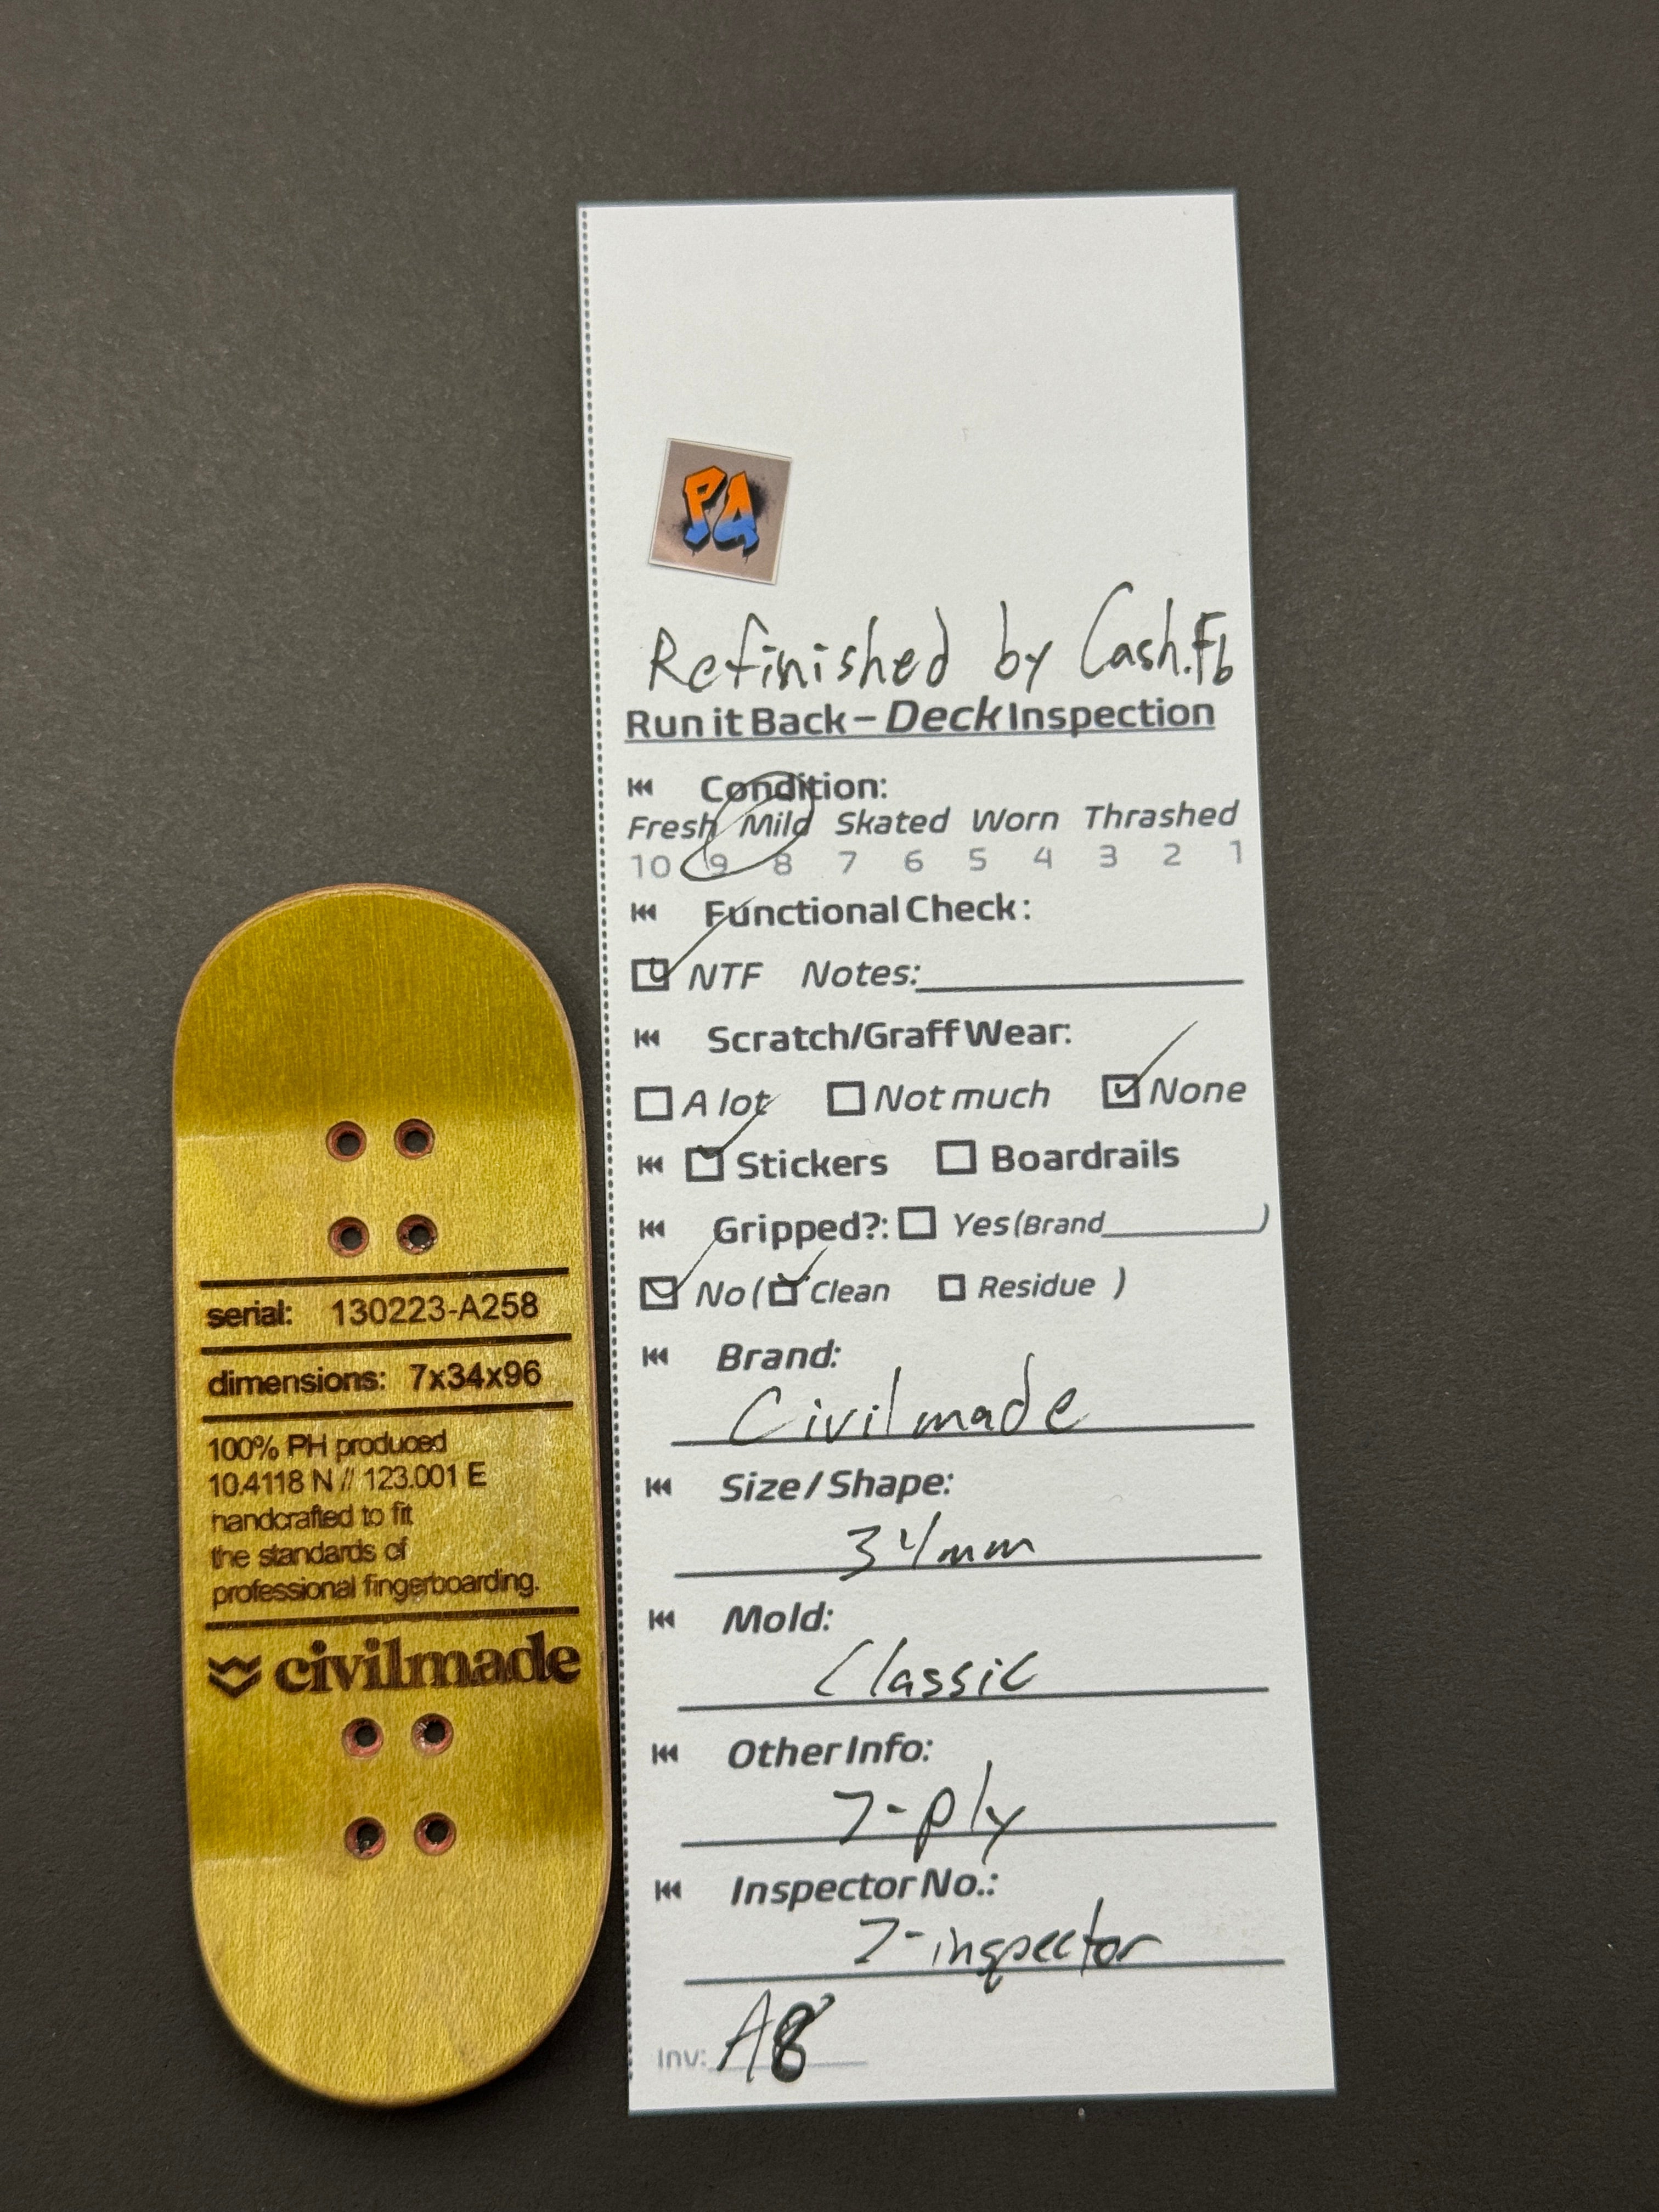 PA
Refinished by Cash.Fb
Run it Back – Deck Inspection
Condition:
Fresh Mild Skated Worn Thrashed
10 9 8 7 6 5 4 3 2 1
Functional Check:
NTF Notes:
Scratch/Graff Wear:
A lot Not much None
Stickers Boardrails
Gripped?: Yes (Brand )
No ( Clean Residue )
Brand:
Civilmade
Size / Shape:
34mm
Mold:
Classic
Other Info:
7-ply
Inspector No.:
7-inspector
Inv: A8
serial: 130223-A258
dimensions: 7x34x96
100% PH produced
10.4118 N // 123.001 E
handcrafted to fit
the standards of
professional fingerboarding.
civilmade